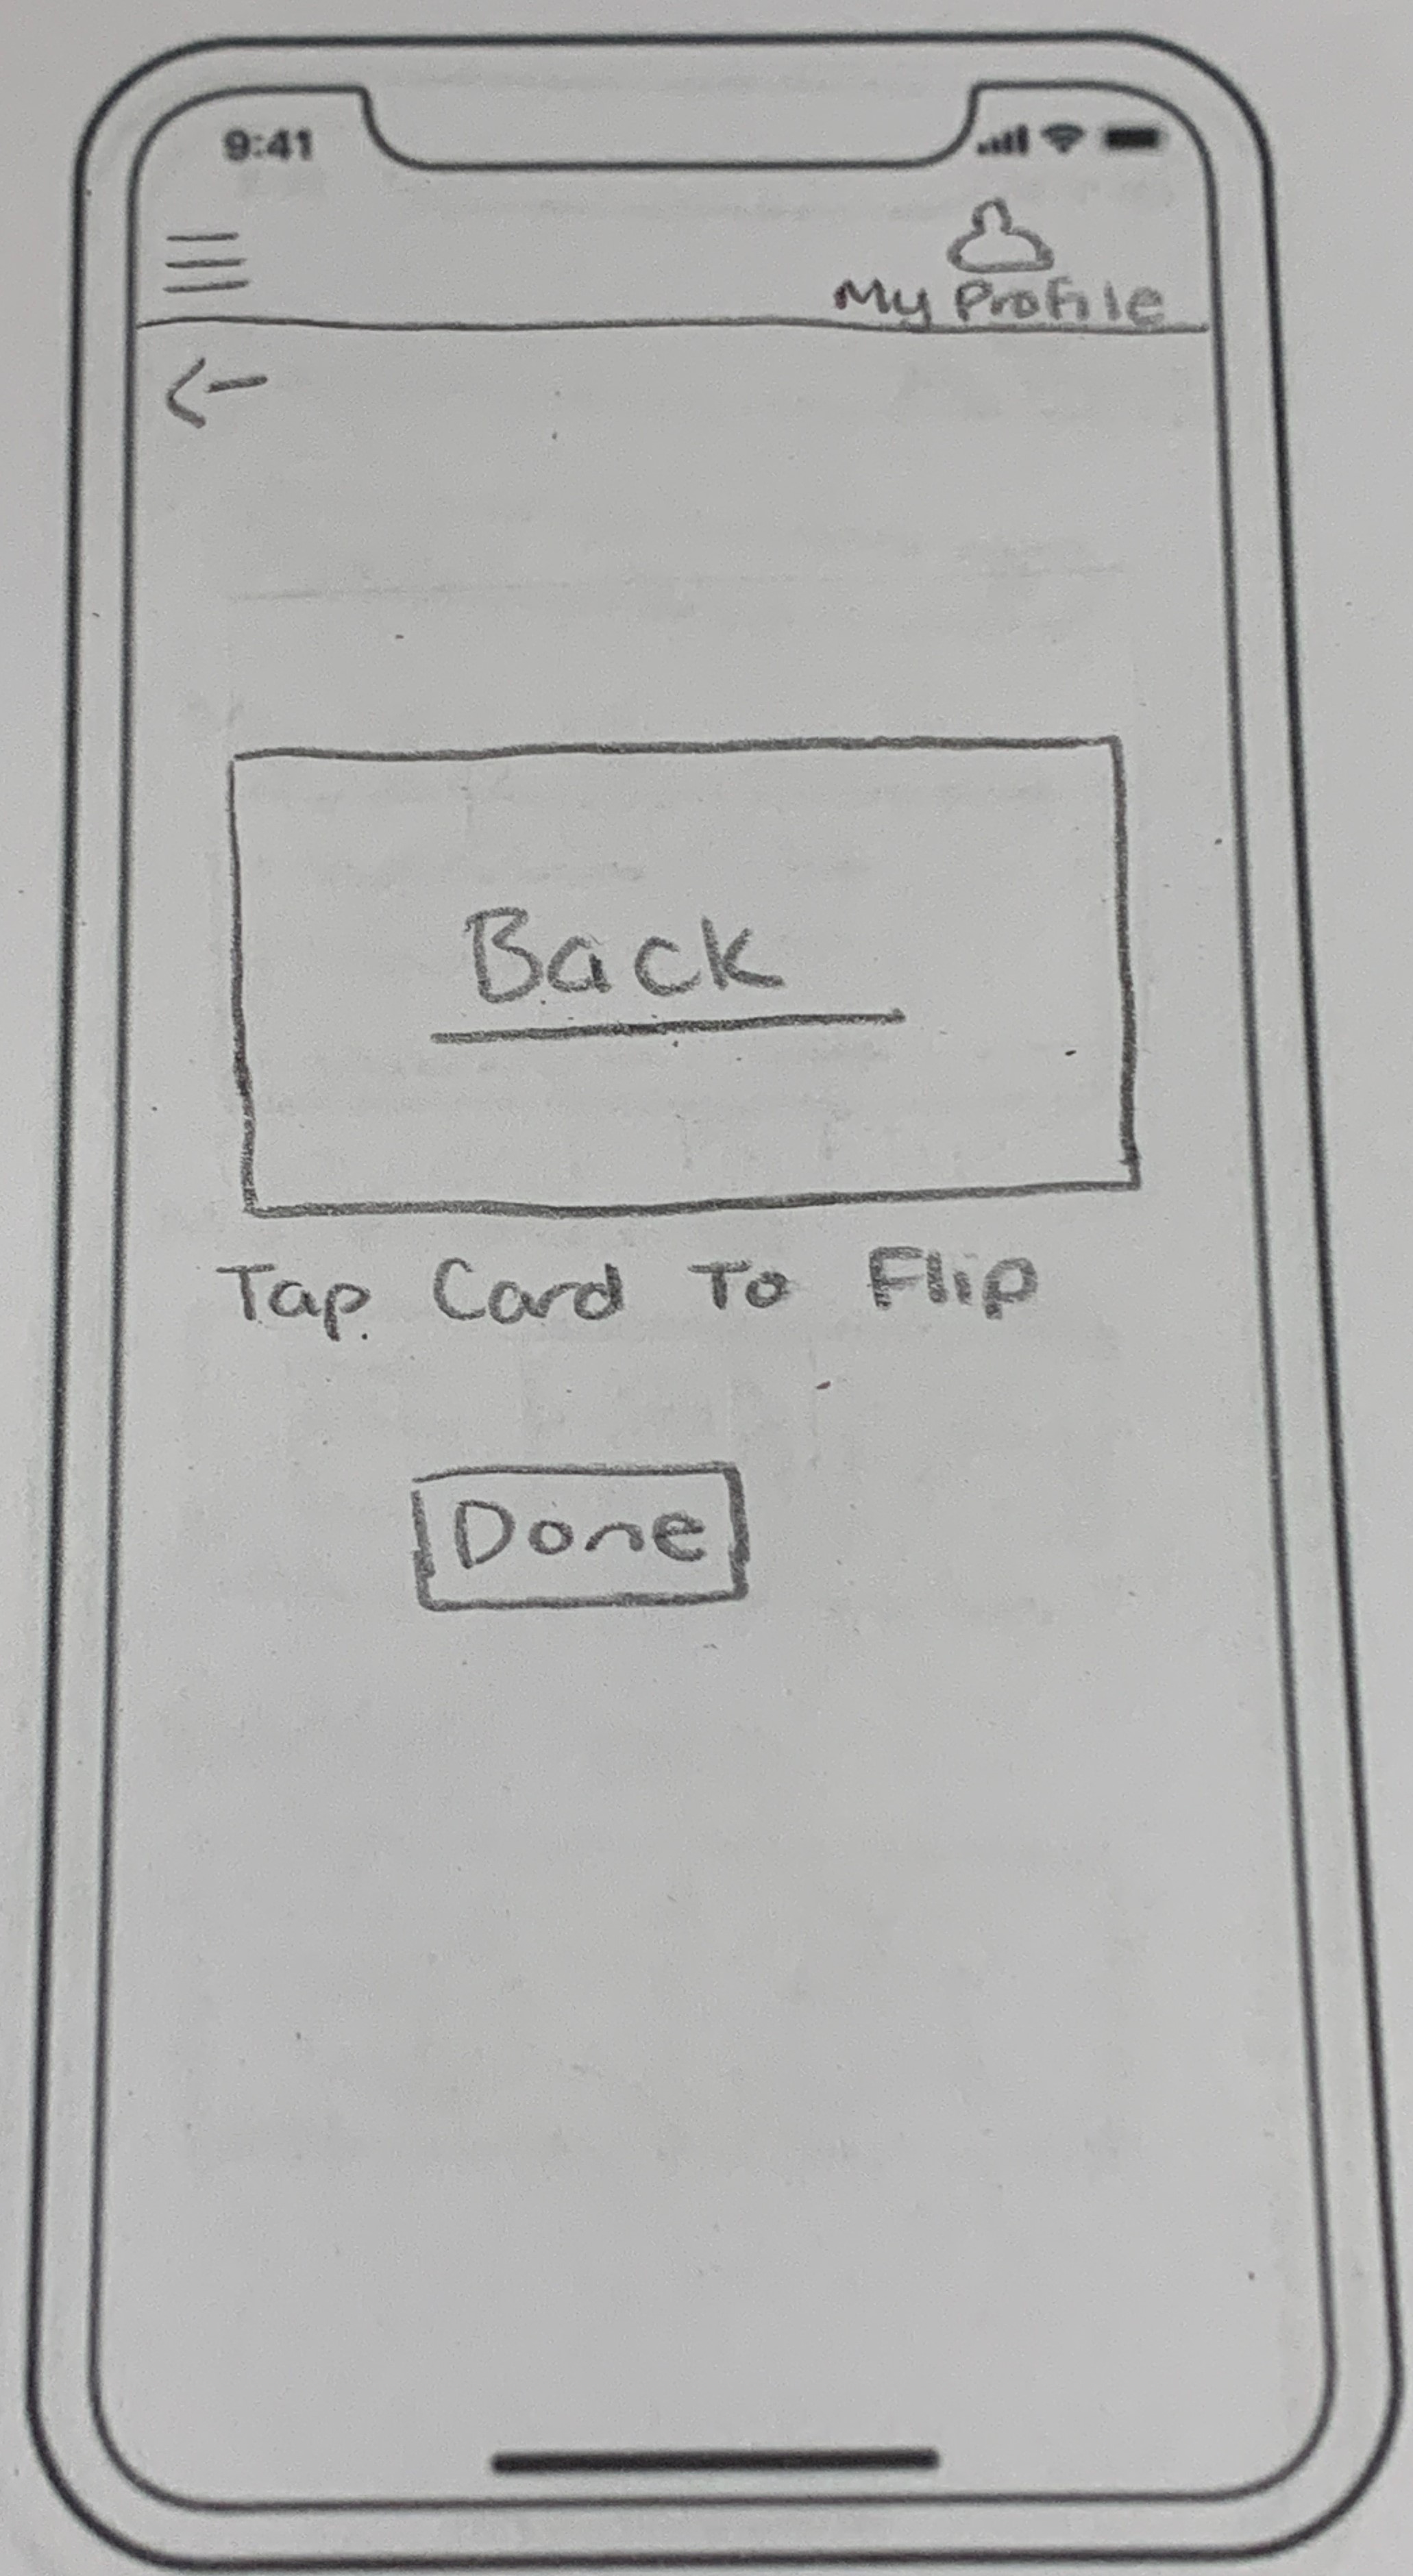 9:41
My Profile
Back
Tap Card To Flip
Done